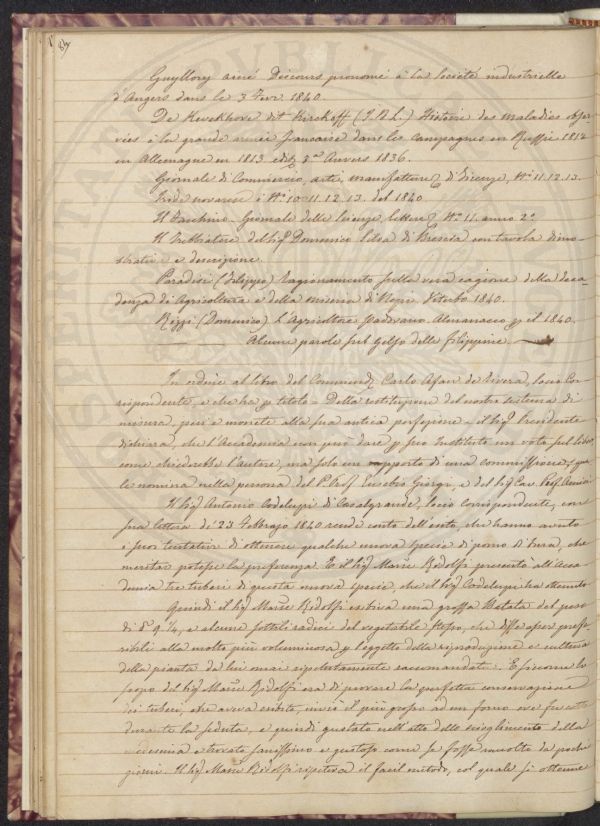 87
Guyllory ainé Discours prononcé à la Société industrielle
d'Angers dans le 3 Fevr. 1840.
De Kerckhove dit Kirchoff (J. R. L.) Histoire des maladies obser-
vées à la grande armée française dans les campagnes en Russie 1812
en Allemagne en 1813 édit. 3me Anvers 1836.
Giornale di Commercio, arti, manifatture di Firenze, No. 11. 12. 13.
Iride novarese i No. 10. 11. 12. 13. del 1840
Il Facchino. Giornale delle Scienze, lettere No. 11. anno 2o
Il Trebbiatore del Sig. Domenico di Brescia con tavola dimo-
strativa e descrizione.
Paradisi (Filippo) Ragionamento sulla vera cagione della deca-
denza di Agricoltura e della miseria di Viterbo 1840.
Rizzi (Domenico) L'Agricoltore padovano. Almanacco p. il 1840.
Alcune parole sul Gelso delle Filippine.
In ordine al libro del Commend. Carlo Afan de Rivera, Socio Cor-
rispondente, e che ha p. titolo = Della restituzione del nostro sistema di
misura, pesi e monete alla sua antica perfezione = il Sig. Presidente
dichiara, che l'Accademia non può dare p. suo Instituto un voto sul libro,
come chiederebbe l'autore, ma solo un rapporto di una commissione; quale
le nomina nella persona del P. Prof. Giorgi, e del Sig. Cav. Prof. Amici
Il Sig. Antonio Codeluppi di Casalgrande, Socio corrispondente, con
sua lettera de' 23 Febbrajo 1840 rende conto dell'esito, che hanno avuto
i suoi tentativi di ottenere qualche nuova specie di pomo di terra, che
meritar potesse la preferenza. E il Sig. March. Ridolfi presentò all'Acca-
demia tre tuberi di questa nuova specie, che il Sig. Codeluppi ha ottenuto
Quindi il Sig. March. Ridolfi estrica una grossa Batata del peso
di e alcune sottili radici del vegetabile stesso, che disse esser prefe-
ribili alla molto più voluminosa p. l'oggetto della riproduzione e cultura
della pianta da lui omai ripetutamente raccomandata. E siccome lo
scopo del Sig. March. Ridolfi era di provare la perfetta conservazione
dei tuberi, che aveva esibito, inviò il più grosso ad un forno ove fu cotto
durante la seduta, e quindi gustato nell'atto dello scioglimento della
medesima e trovato sanissimo e gustoso come se fosse raccolto da pochi
giorni. Il Sig. March. Ridolfi ripeteva il facil metodo, col quale si ottenne